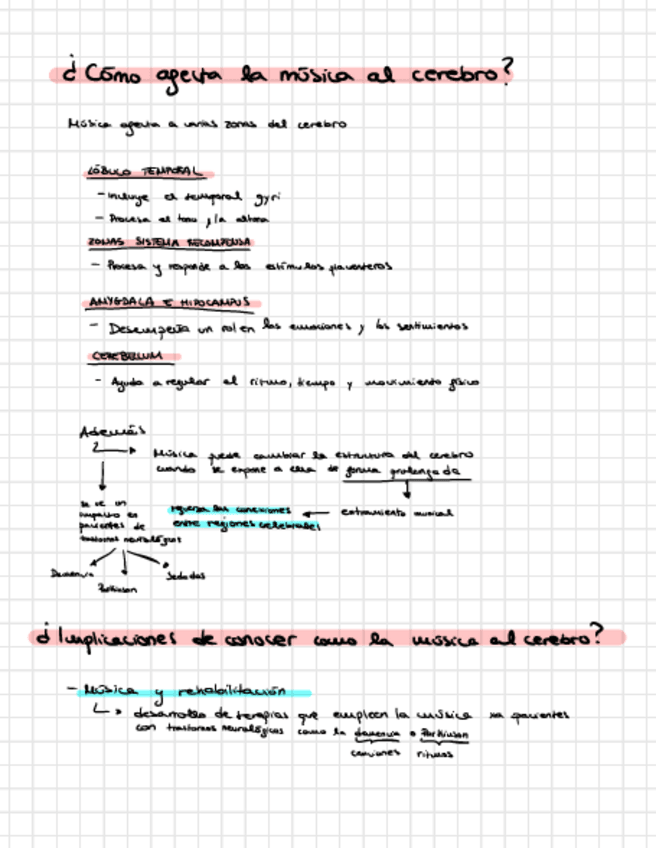 ¿Cómo afecta la música al cerebro?
Música afecta a varias zonas del cerebro
LÓBULO TEMPORAL
- Incluye el temporal gyri
- Procesa el tono y la altura
ZONAS SISTEMA RECOMPENSA
- Procesa y responde a los estímulos placenteros
AMYGDALA E HIPOCAMPUS
- Desempeña un rol en las emociones y los sentimientos
CEREBELLUM
- Ayuda a regular el ritmo, tiempo y movimiento físico
Además
Música puede cambiar la estructura del cerebro
cuando se expone a ella de forma prolongada
se ve un
impacto en
pacientes de
trastornos neurológicos
refuerza las conexiones
entre regiones cerebrales
entrenamiento musical
Demencia
Parkinson
Sedadas
¿Implicaciones de conocer como la música al cerebro?
- Música y rehabilitación
desarrollo de terapias que empleen la música pacientes
con trastornos neurológicos como la demencia o Parkinson
canciones ritmos